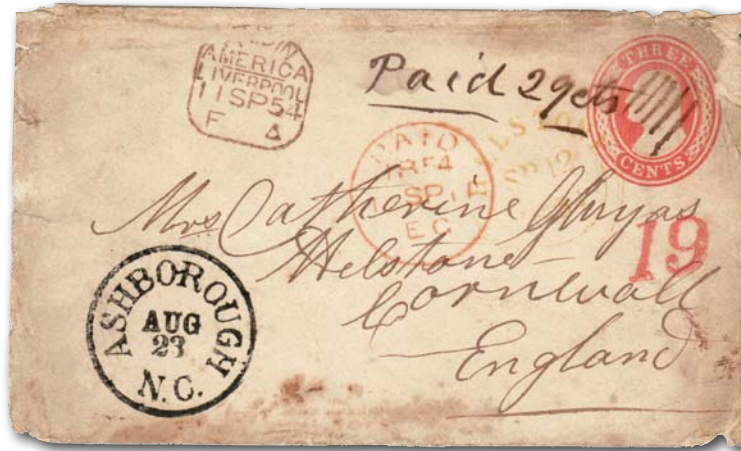 AMERICA
LIVERPOOL
11SP54
F A
Paid 29cts
THREE
CENTS
PAID
SP
EC
HELSTON
SP 12
Mrs Catherine
Helstone
Cornwall
England
19
ASHBOROUGH
AUG
23
N.C.